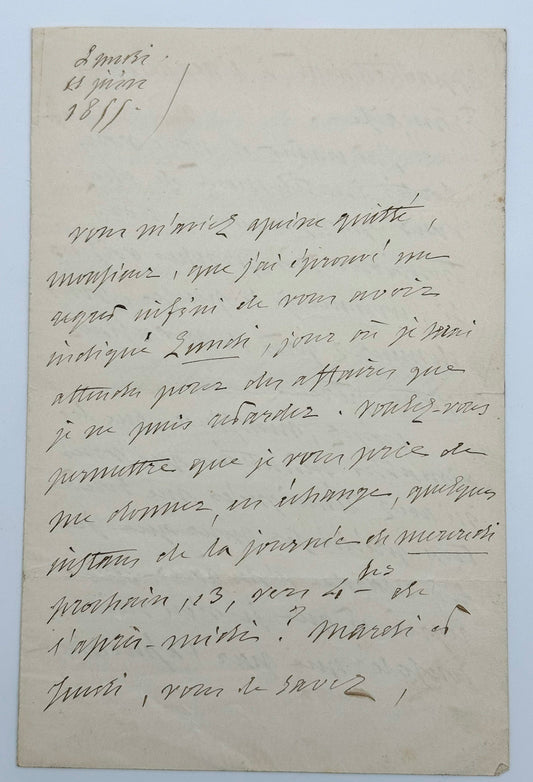 Lundi
11 juin
1855.
vous m'aviez apeine quitté,
monsieur, que j'ai éprouvé un
regret infini de vous avoir
indiqué Lundi, jour où je serai
attendu pour des affaires que
je ne puis retarder. voulez-vous
permettre que je vous prie de
me donner, en échange, quelques
instans de la journée de mercredi
prochain, 13, vers 4 hes de
l'après-midi? Mardi et
Jeudi, vous le savez,